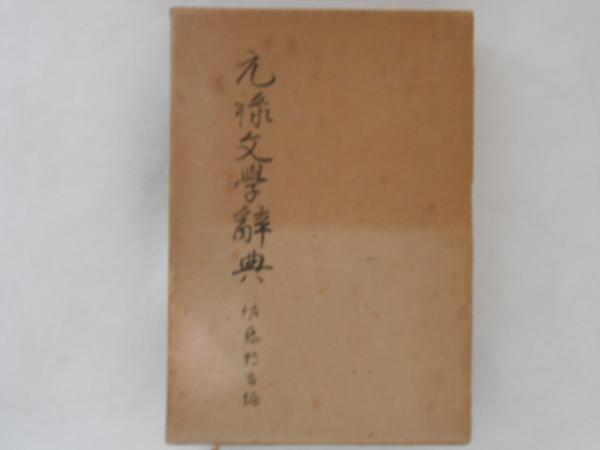 元禄文學辭典
佐藤鶴吉編